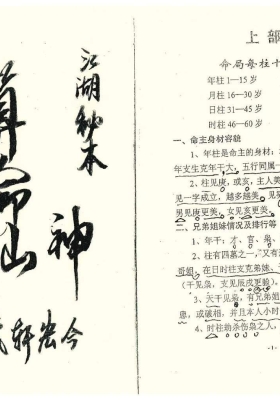 江湖秘本
神
上部
命局每柱十
年柱1—15岁
月柱16—30岁
日柱31—45岁
时柱46—60岁
一、命主身材容貌
1、年柱是命主的身材：
年支生克年干大，五行同属
2、柱见庚，或亥，主人美
见一字成立，越多越美。
男见庚更美，女见亥更美。
二、兄弟姐妹情况及排行等
1、年干：才、官、枭、
2、柱有四墓之一，又有
哥姐，在日时柱支克弟妹、
（干见枭，支见辰戌更验）
3、天干见枭，有兄弟姐
患，或破相，并且本人小时
4、时柱劫杀伤枭之人，
·1·